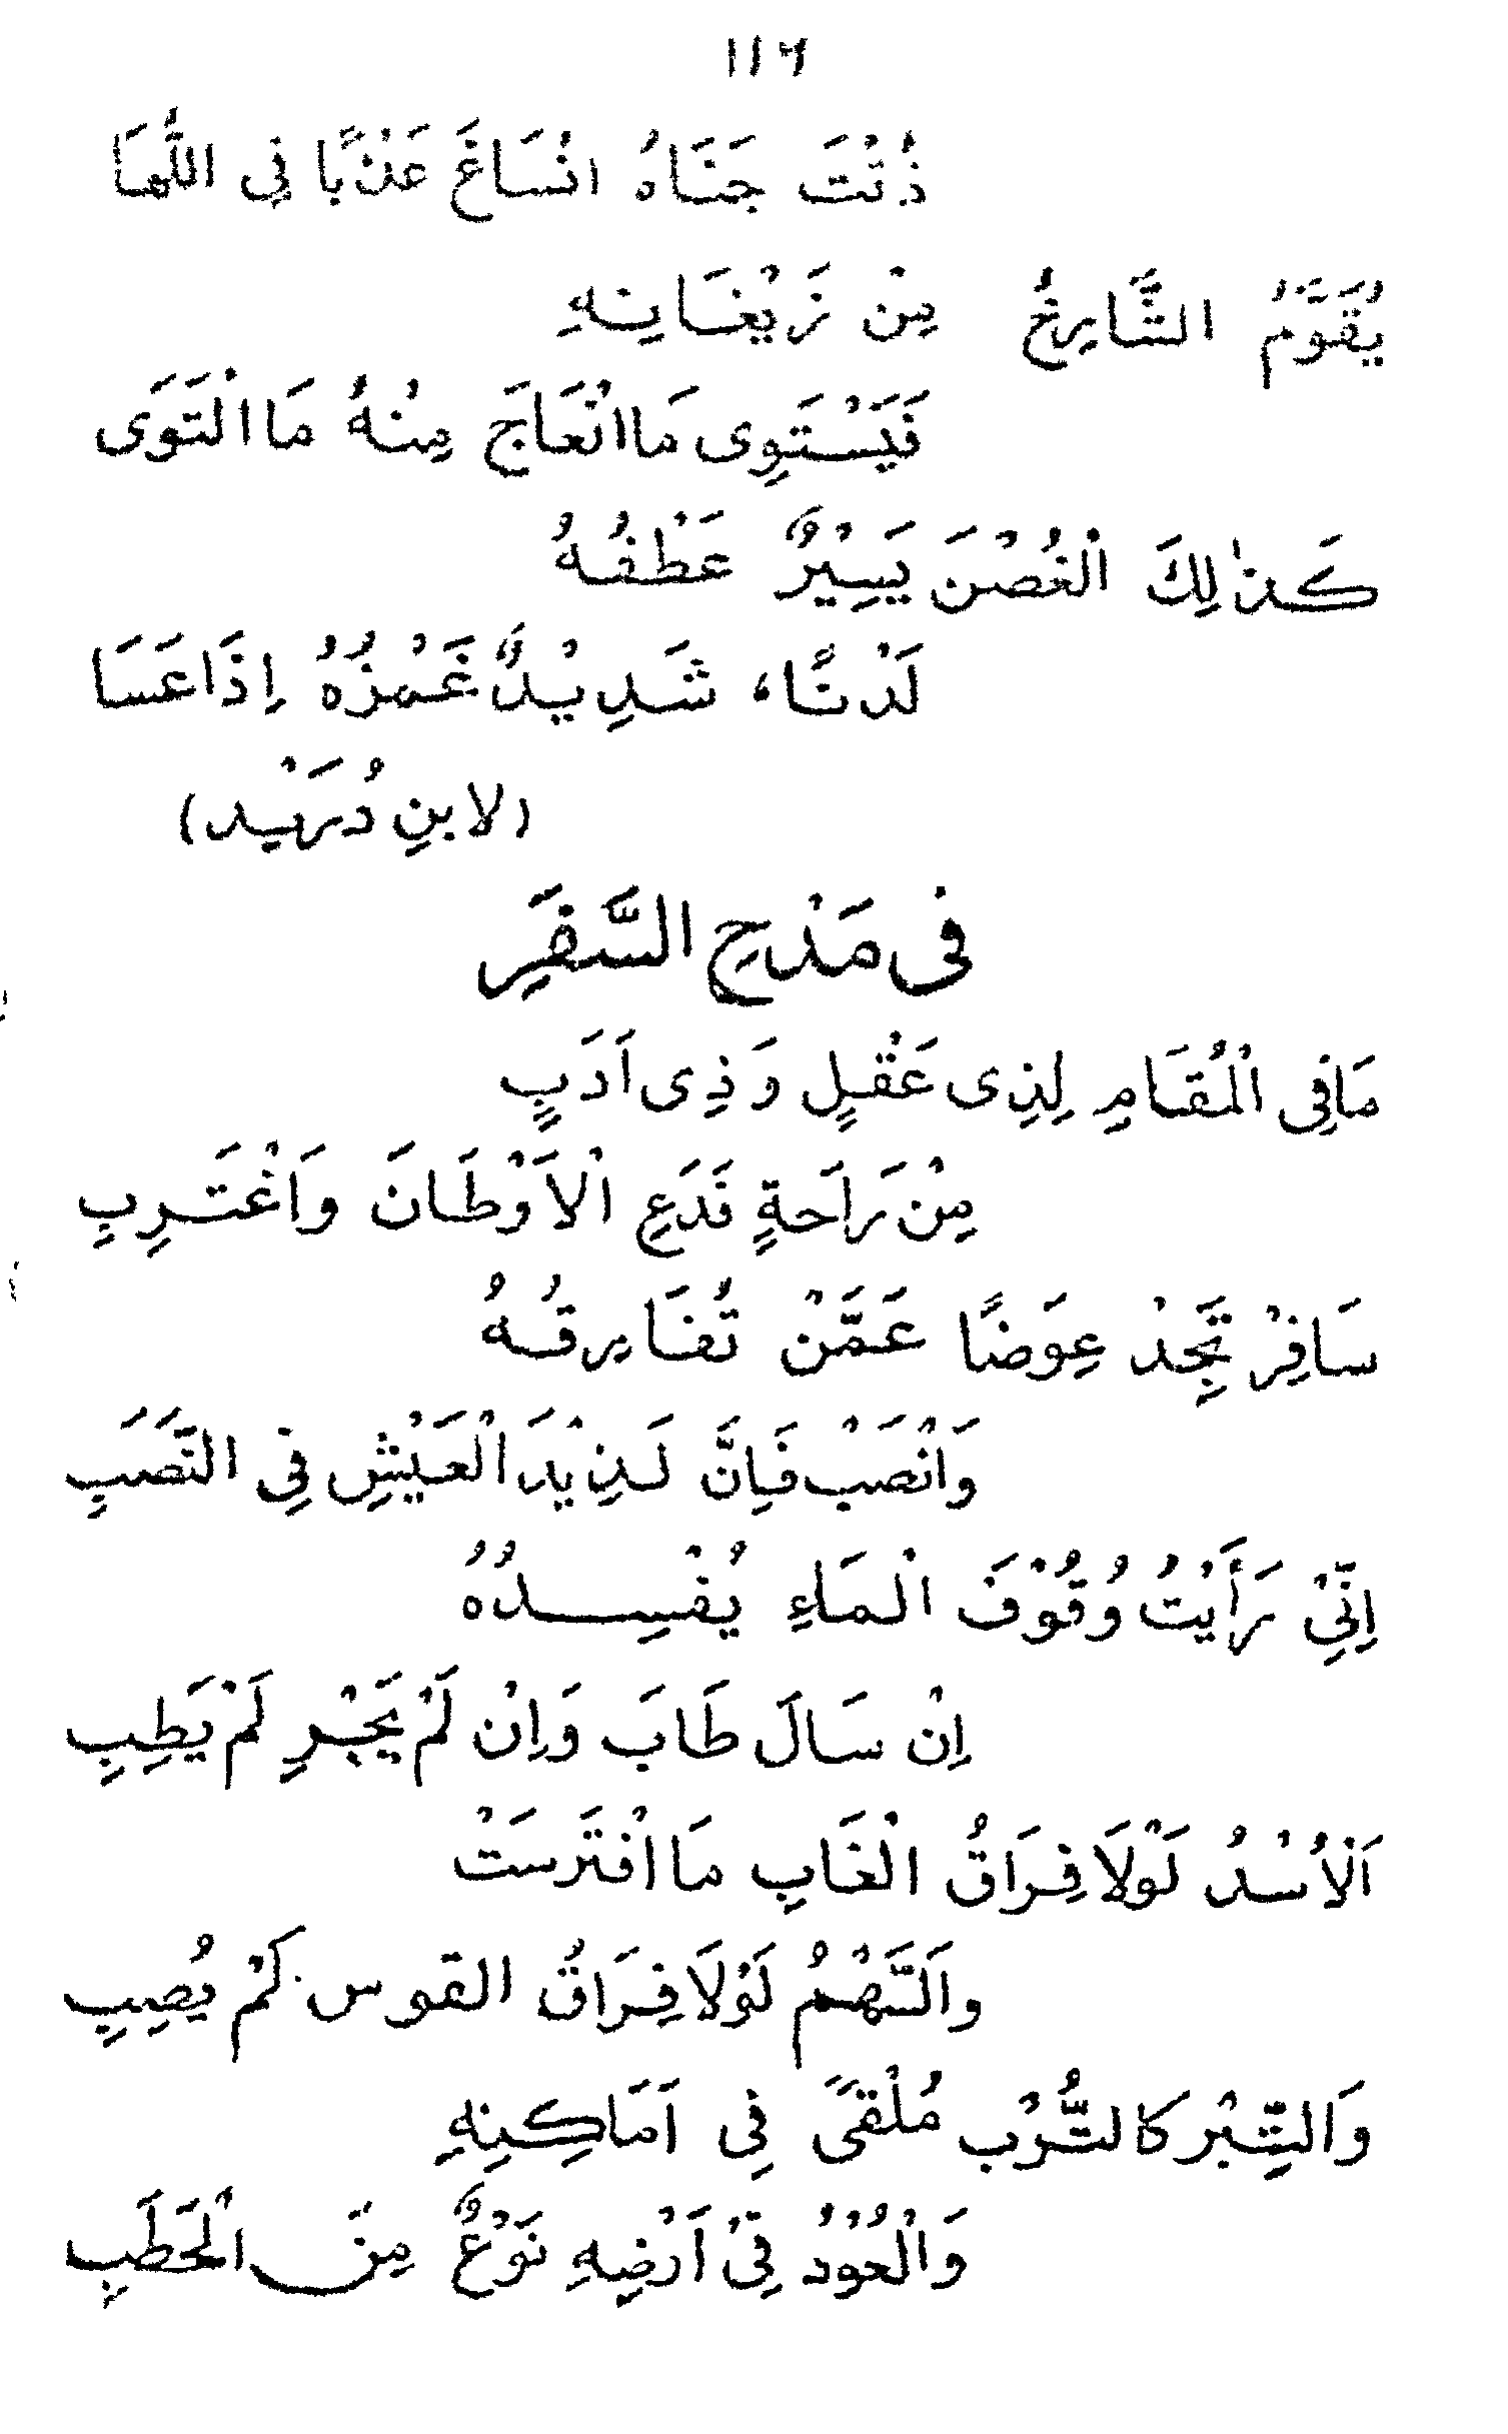 ۱۱۶
ذُقْتَ جَنَاهُ انْسَاغَ عَذْبًا فِى اللَّهَا
يُقَوَّمُ الشَّارِخُ مِنْ زَيْغَانِهِ
فَيَسْتَوِى مَا انْعَاجَ مِنْهُ مَا الْتَوَى
كَذٰلِكَ الْغُصْنَ يَسِيْرٌ عَطْفُهُ
لَدْنًا، شَدِيْدٌ غَمْزُهُ اِذَا عَسَا
(لابنِ دُرَيْد)
فى مَدْحِ السَّفَرِ
مَا فِى الْمُقَامِ لِذِى عَقْلٍ وَ ذِى اَدَبٍ
مِنْ رَاحَةٍ فَدَعِ الْاَوْطَانَ وَاغْتَرِبِ
سَافِرْ تَجِدْ عِوَضًا عَمَّنْ تُفَارِقُهُ
وَانْصَبْ فَاِنَّ لَذِيْذَ الْعَيْشِ فِى النَّصَبِ
اِنِّىْ رَأَيْتُ وُقُوْفَ الْمَاءِ يُفْسِدُهُ
اِنْ سَالَ طَابَ وَاِنْ لَمْ يَجْرِ لَمْ يَطِبِ
اَلْاُسْدُ لَوْلَا فِرَاقُ الْغَابِ مَا افْتَرَسَتْ
وَالسَّهْمُ لَوْلَا فِرَاقُ القوس لَمْ يُصِبِ
وَالتِّبْر كَالتُّرْب مُلْقًى فِى اَمَاكِنِهِ
وَالْعُوْدُ فِىْ اَرْضِهِ نَوْعٌ مِنَ الْحَطَبِ